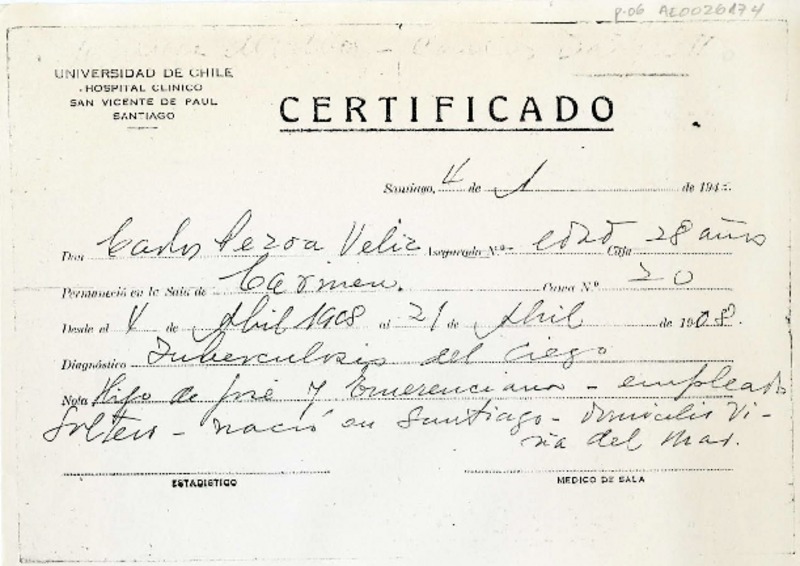 p-06 AE0026174
UNIVERSIDAD DE CHILE
HOSPITAL CLINICO
SAN VICENTE DE PAUL
SANTIAGO
CERTIFICADO
Santiago, 4 de 1 de 194
Don Carlos Pezoa Veliz Asegurado N.º edad Caja 28 años
Permaneció en la Sala de Carmen. Cama N.º 20
Desde el 4 de Abril 1908 al 21 de Abril de 1908.
Diagnóstico Tuberculosis del Ciego
Nota Hijo de José y Emerenciana - empleado
Soltero - nació en Santiago - domicilio Vi-
ña del Mar.
ESTADISTICO
MEDICO DE SALA